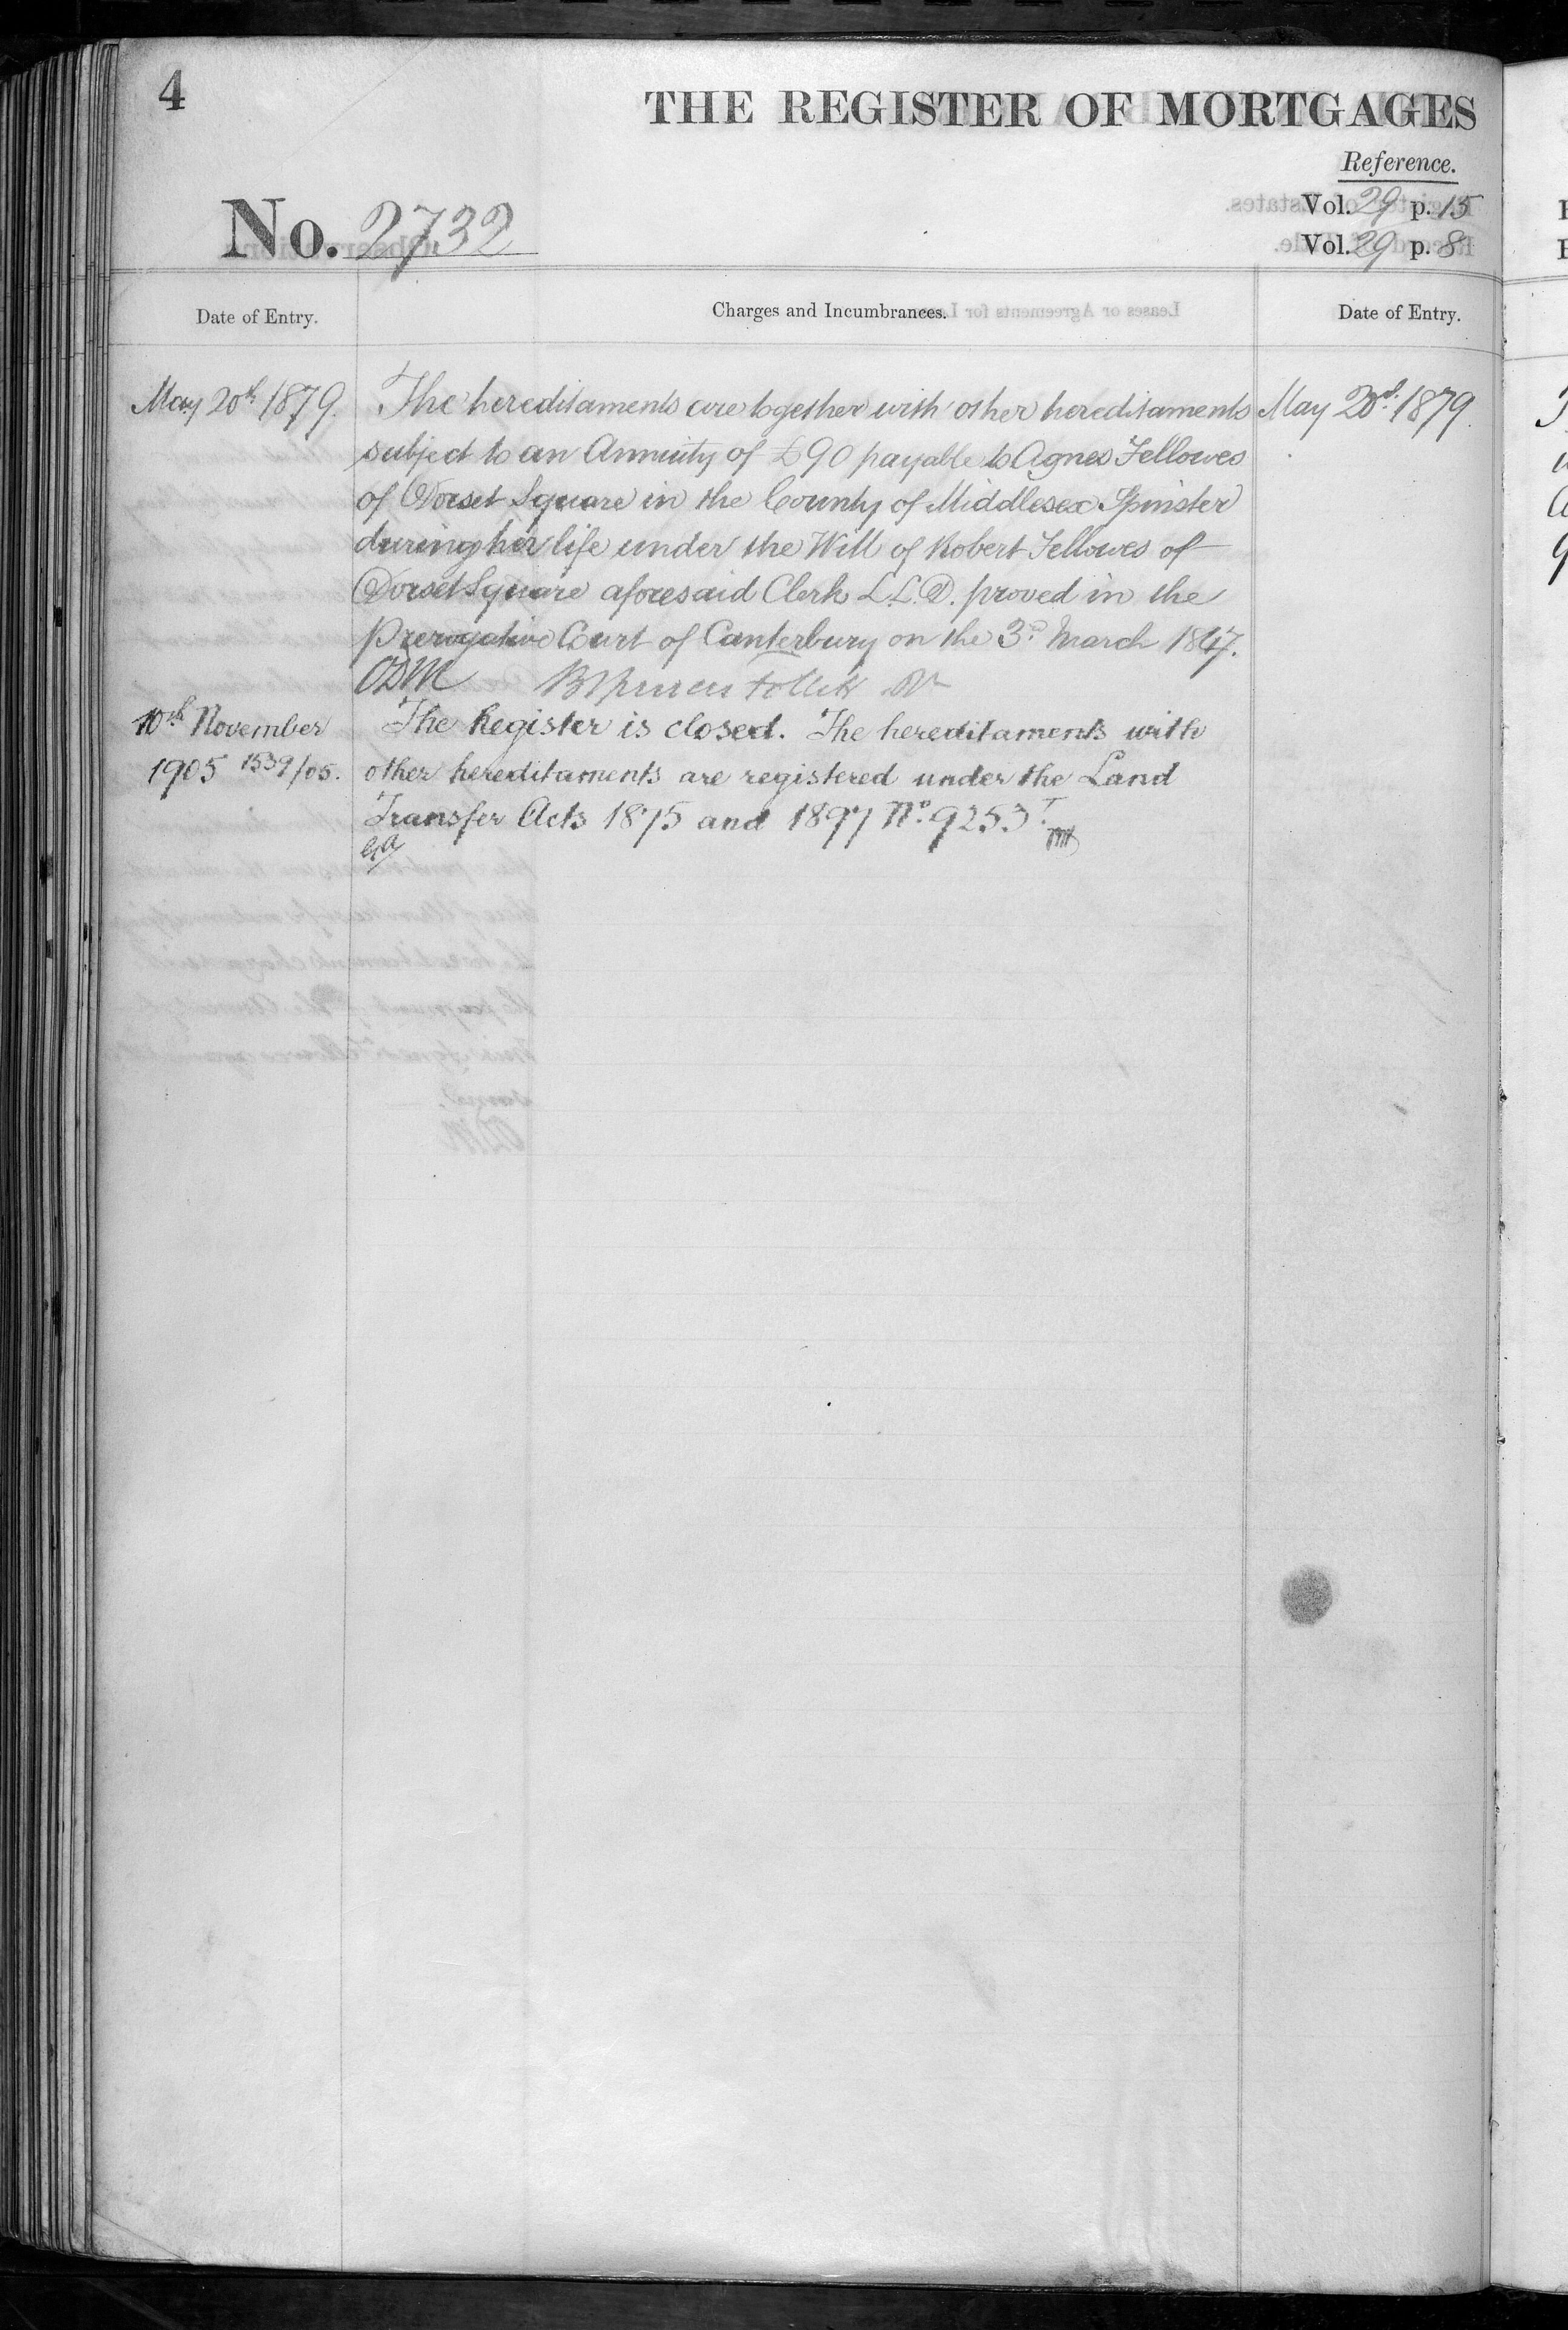 4
THE REGISTER OF MORTGAGES
Reference.
Vol. 29 p. 15
Vol. 29 p. 8
No. 2732
Date of Entry.
Charges and Incumbrances.
Date of Entry.
May 20th 1879.
The hereditaments are together with other hereditaments
subject to an Annuity of £90 payable to Agnes Fellowes
of Dorset Square in the County of Middlesex Spinster
during her life under the Will of Robert Fellowes of
Dorset Square aforesaid Clerk L.L.D. proved in the
Prerogative Court of Canterbury on the 3rd March 1847.
ODM
May 20th 1879.
10th November
1905 1539/05.
The Register is closed. The hereditaments with
other hereditaments are registered under the Land
Transfer Acts 1875 and 1897 No. 9253